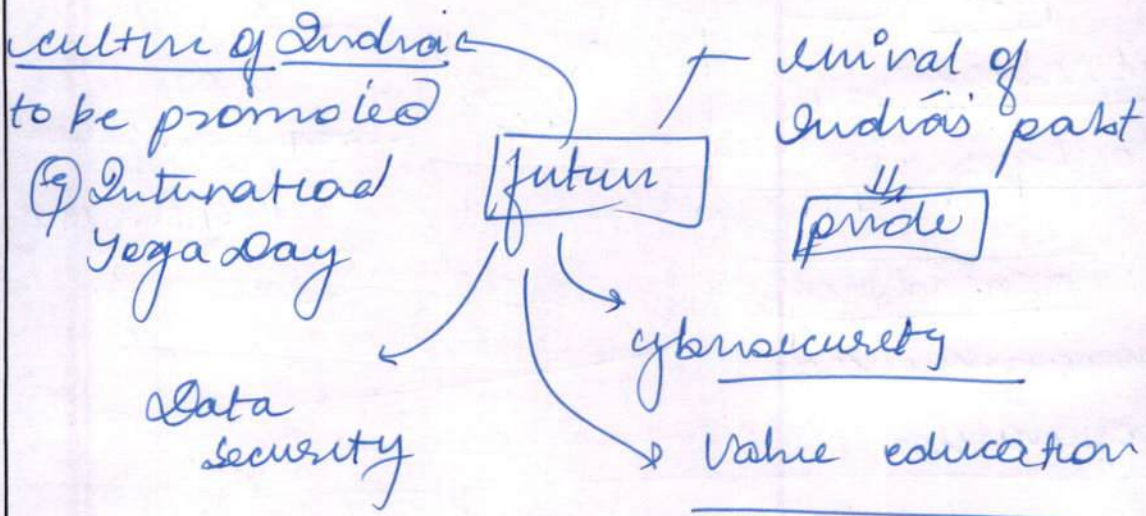 culture of India
to be promoted
eg International
Yoga Day
future
revival of
India's past
pride
cybersecurity
Data
security
Value education